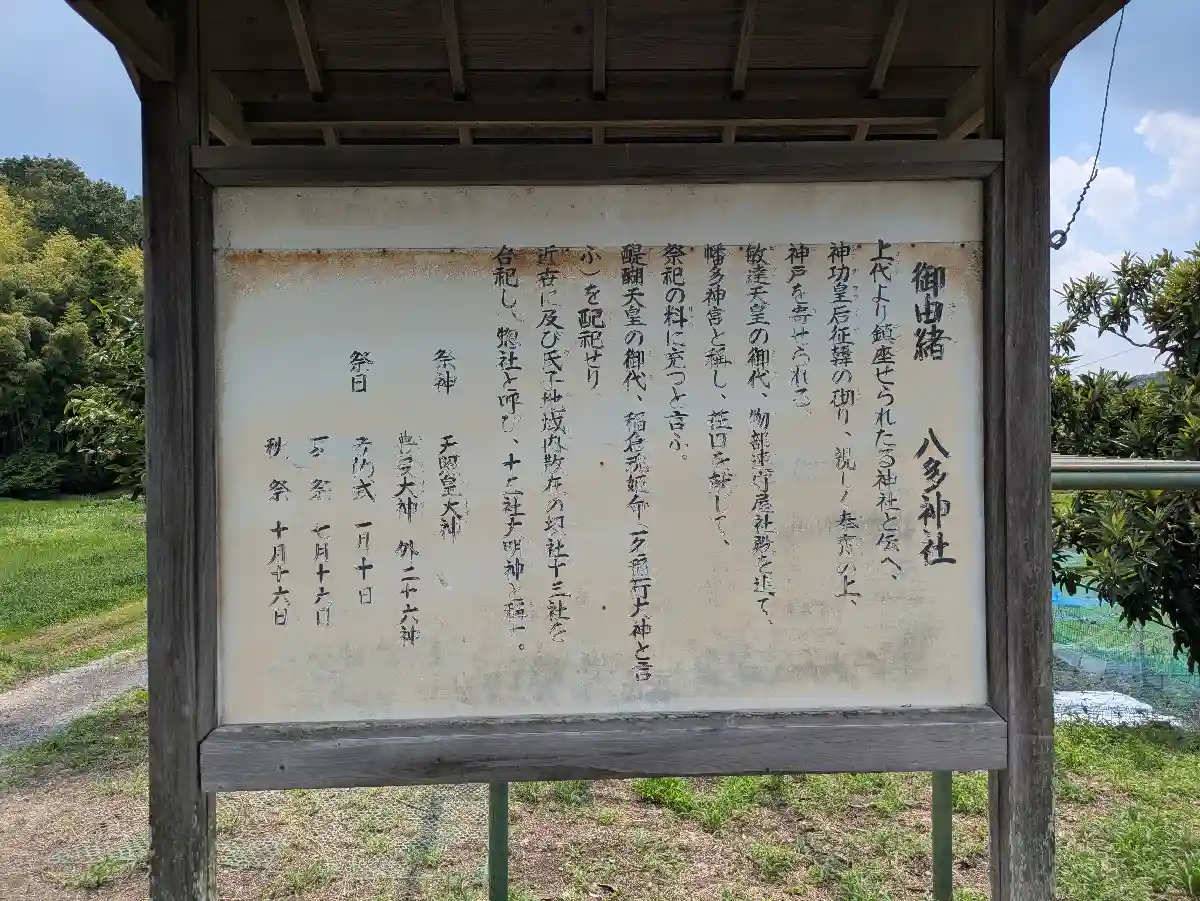 御由緒 八多神社
上代より鎮座せられたる神社と伝へ、
神功皇后征韓の砌り、親しく奉斎の上、
神戸を寄せられる
敏達天皇の御代、物部守屋社殿を造て、
幡多神宮と稱し、荘田を献して、
祭祀の料に充つと言ふ。
醍醐天皇の御代、稲倉魂姫命(夕稲荷大神と言
ふ)を配祀せり
近古に及び氏子地域内散在の切社十三社を
合祀し、惣社と呼び、十二社大明神と稱す。
祭神 天照皇大神
豊受大神 外二十六神
祭日 一月十日
夏祭 七月十六日
秋祭 十月十六日